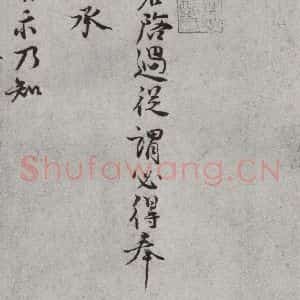 啓過從謂必得奉
承
示乃知
Shufawang.CN